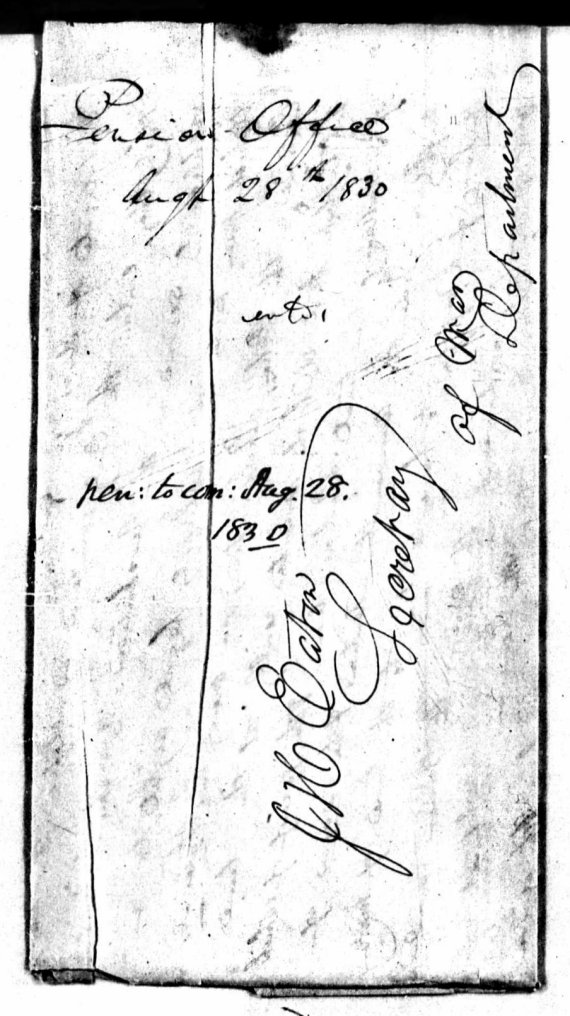 Pension Office
Augt 28th 1830
entd,
pen: to com: Aug. 28.
1830
J H Eaton
Secretary
of War
Department